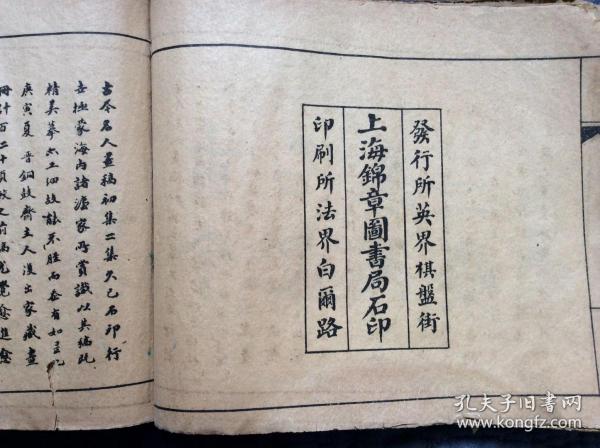 發行所英界棋盤街
上海錦章圖書局石印
印刷所法界白爾路
古今名人畫稿初集二集久已石印行
世極蒙海內諸濵家所賞識以其編既
精美摹
庚寅夏晋銅鼓齋主人復出家藏畫
冊計百二十頁較之前稿尤覺愈進愈
孔夫子旧书网
www.kongfz.com